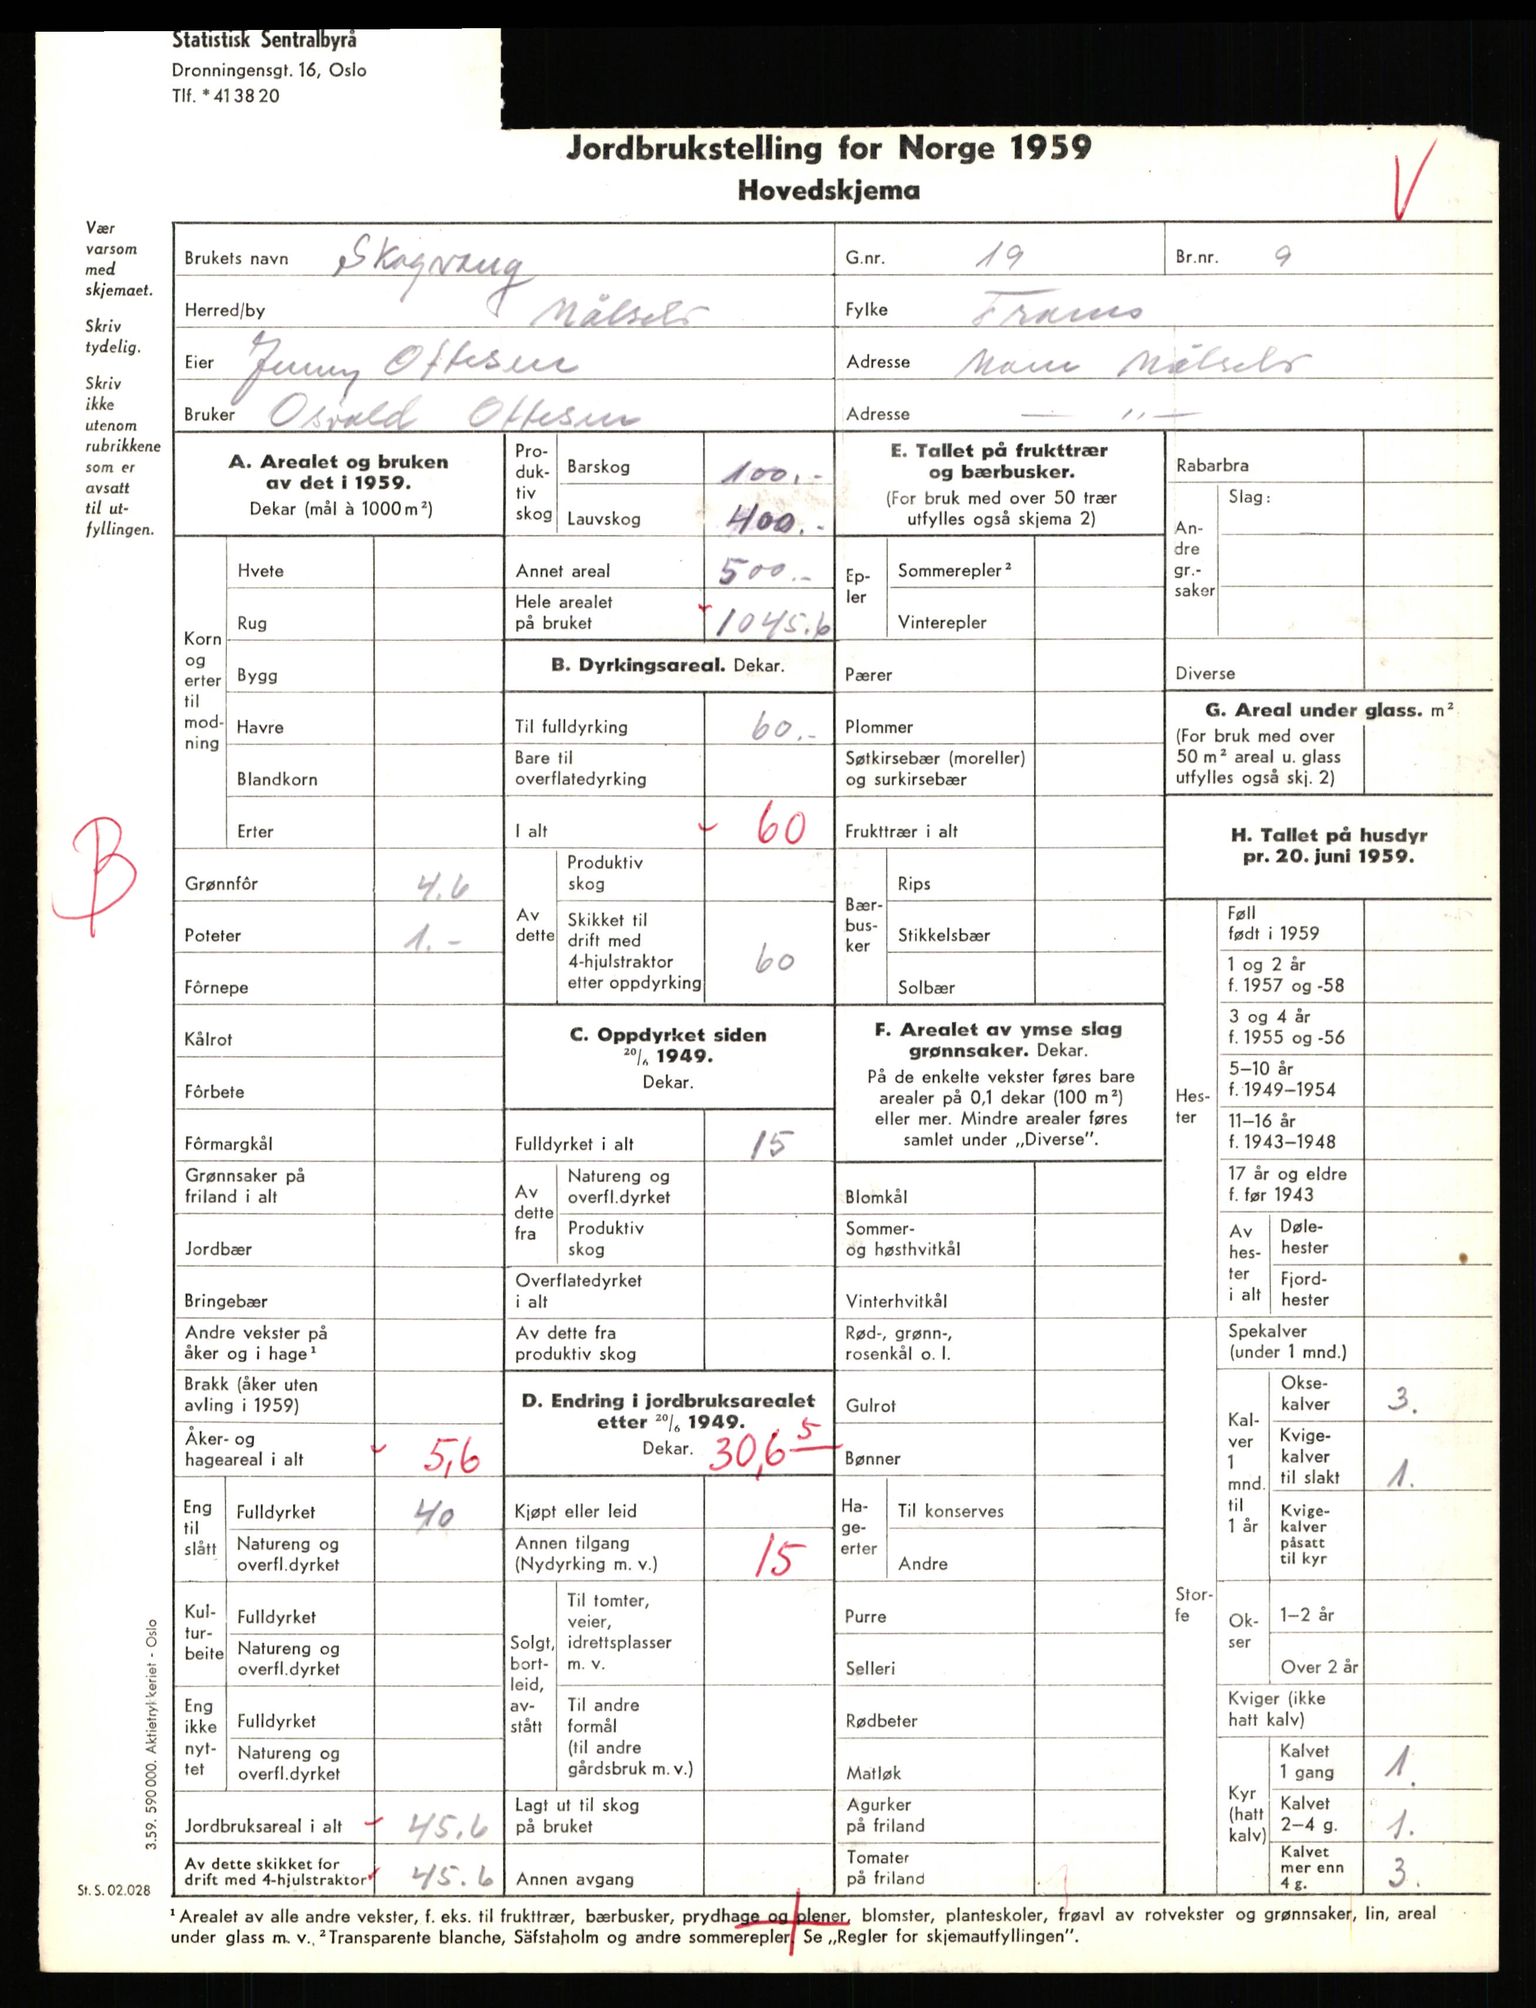 Statistisk Sentralbyrå
Dronningensgt. 16, Oslo
Tlf. * 41 38 20
Jordbrukstelling for Norge 1959
Hovedskjema
V
Vær
varsom
med
skjemaet.
Skriv
tydelig.
Skriv
ikke
utenom
rubrikkene
som er
avsatt
til ut-
fyllingen.
Brukets navn Skogvang G.nr. 19 Br.nr. 9
Herred/by Målselv Fylke Troms
Eier Jenny Ottesen Adresse Moen Målselv
Bruker Osvald Ottesen Adresse — " —
A. Arealet og bruken
av det i 1959.
Dekar (mål à 1000 m²)
Korn
og
erter
til
mod-
ning
Hvete
Rug
Bygg
Havre
Blandkorn
Erter
B
Grønnfôr 4.6
Poteter 1.-
Fôrnepe
Kålrot
Fôrbete
Fôrmargkål
Grønnsaker på
friland i alt
Jordbær
Bringebær
Andre vekster på
åker og i hage¹
Brakk (åker uten
avling i 1959)
Åker- og
hageareal i alt 5,6
Eng
til
slått
Fulldyrket 40
Natureng og
overfl.dyrket
Kul-
tur-
beite
Fulldyrket
Natureng og
overfl.dyrket
Eng
ikke
nyt-
tet
Fulldyrket
Natureng og
overfl.dyrket
Jordbruksareal i alt 45.6
Av dette skikket for
drift med 4-hjulstraktor 45.6
Pro-
duk-
tiv
skog
Barskog 100.-
Lauvskog 400.-
Annet areal 500.-
Hele arealet
på bruket 1045.6
B. Dyrkingsareal. Dekar.
Til fulldyrking 60.-
Bare til
overflatedyrking
I alt 60
Av
dette
Produktiv
skog
Skikket til
drift med
4-hjulstraktor
etter oppdyrking 60
C. Oppdyrket siden
20/6 1949.
Dekar.
Fulldyrket i alt 15
Av
dette
fra
Natureng og
overfl.dyrket
Produktiv
skog
Overflatedyrket
i alt
Av dette fra
produktiv skog
D. Endring i jordbruksarealet
etter 20/6 1949.
Dekar. 30,6 5
Kjøpt eller leid
Annen tilgang
(Nydyrking m. v.) 15
Solgt,
bort-
leid,
av-
stått
Til tomter,
veier,
idrettsplasser
m. v.
Til andre
formål
(til andre
gårdsbruk m. v.)
Lagt ut til skog
på bruket
Annen avgang
E. Tallet på frukttrær
og bærbusker.
(For bruk med over 50 trær
utfylles også skjema 2)
Ep-
ler
Sommerepler²
Vinterepler
Pærer
Plommer
Søtkirsebær (moreller)
og surkirsebær
Frukttrær i alt
Bær-
bus-
ker
Rips
Stikkelsbær
Solbær
F. Arealet av ymse slag
grønnsaker. Dekar.
På de enkelte vekster føres bare
arealer på 0,1 dekar (100 m²)
eller mer. Mindre arealer føres
samlet under „Diverse".
Blomkål
Sommer-
og høsthvitkål
Vinterhvitkål
Rød-, grønn-,
rosenkål o. l.
Gulrot
Bønner
Ha-
ge-
erter
Til konserves
Andre
Purre
Selleri
Rødbeter
Matløk
Agurker
på friland
Tomater
på friland
Rabarbra
An-
dre
gr.-
saker
Slag:
Diverse
G. Areal under glass. m²
(For bruk med over
50 m² areal u. glass
utfylles også skj. 2)
H. Tallet på husdyr
pr. 20. juni 1959.
Hes-
ter
Føll
født i 1959
1 og 2 år
f. 1957 og -58
3 og 4 år
f. 1955 og -56
5–10 år
f. 1949–1954
11–16 år
f. 1943–1948
17 år og eldre
f. før 1943
Av
hes-
ter
i alt
Døle-
hester
Fjord-
hester
Stor-
fe
Spekalver
(under 1 mnd.)
Kal-
ver
1
mnd.
til
1 år
Okse-
kalver 3.
Kvige-
kalver
til slakt 1.
Kvige-
kalver
påsatt
til kyr
Ok-
ser
1–2 år
Over 2 år
Kviger (ikke
hatt kalv)
Kyr
(hatt
kalv)
Kalvet
1 gang 1.
Kalvet
2–4 g. 1.
Kalvet
mer enn
4 g. 3.
3.59. 590 000. Aktietrykkeriet - Oslo
St. S. 02.028
¹ Arealet av alle andre vekster, f. eks. til frukttrær, bærbusker, prydhage og plener, blomster, planteskoler, frøavl av rotvekster og grønnsaker, lin, areal
under glass m. v. ² Transparente blanche, Säfstaholm og andre sommerepler. Se „Regler for skjemautfyllingen".